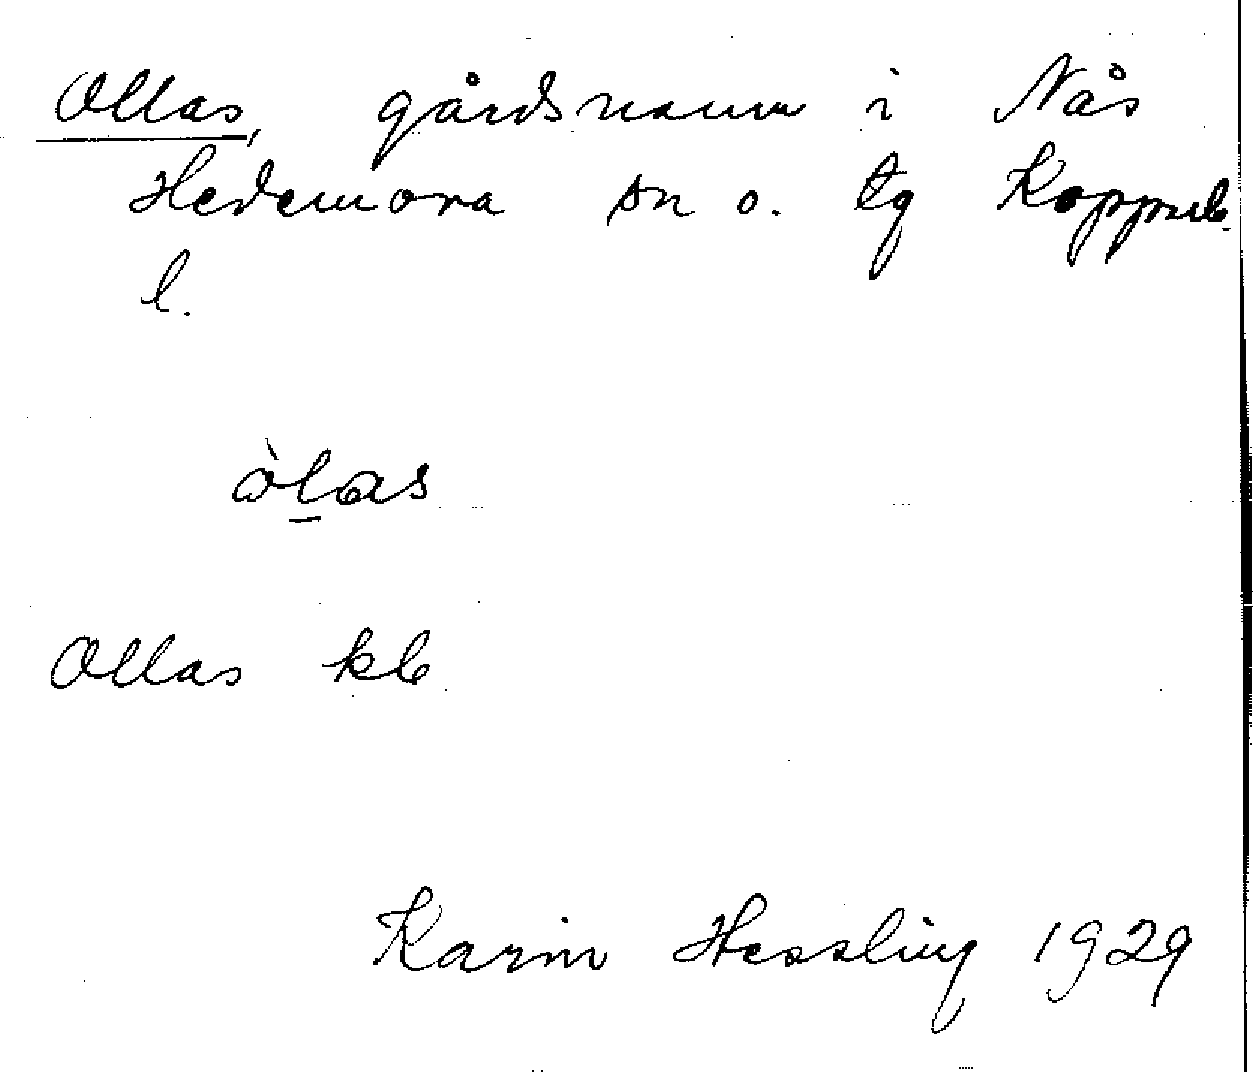 Ollas, gårdsnamn i Nås
Hedemora sn o. tg Kopparb.
l.
òl̲as
Ollas kb
Karin Hessling 1929